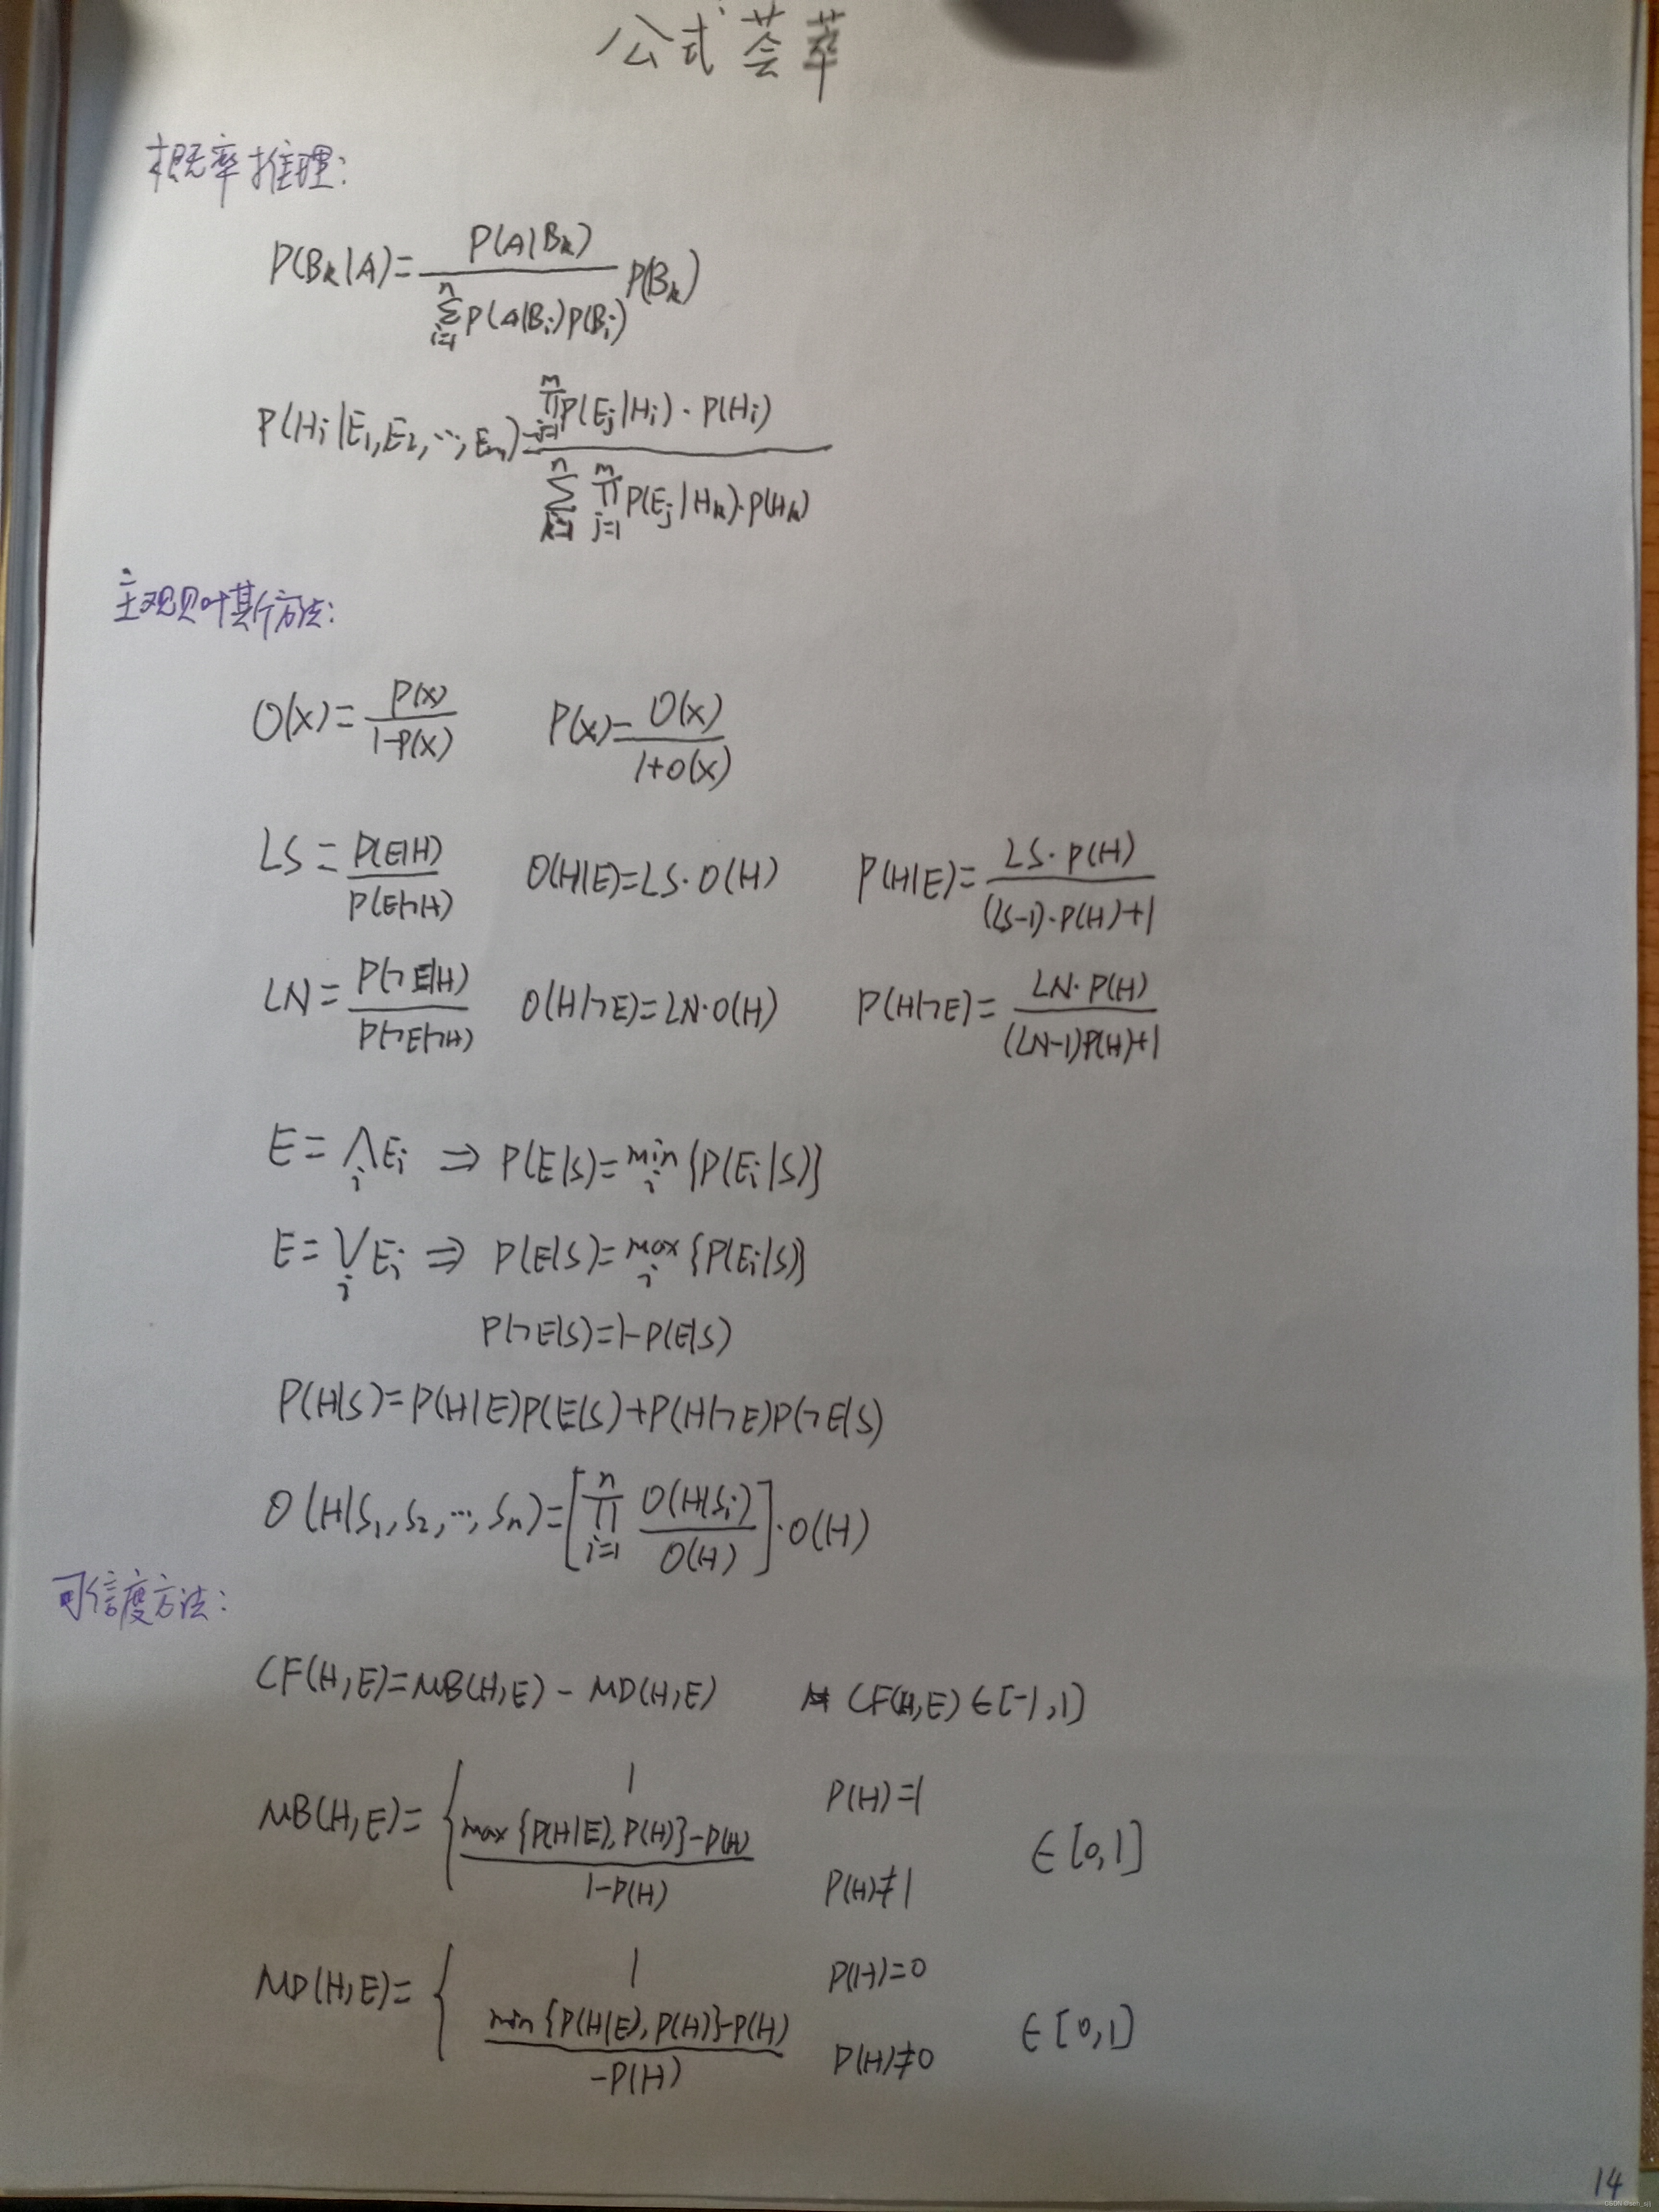 公式荟萃
概率推理:
P(Bk|A)=\frac{P(A|Bk)}{\sum_{i=1}^{n}P(A|Bi)P(Bi)}P(Bk)
P(Hi|E1,E2,…,Em)=\frac{\prod_{j=1}^{m}P(Ej|Hi)·P(Hi)}{\sum_{k=1}^{n}\prod_{j=1}^{m}P(Ej|Hk)·P(Hk)}
主观贝叶斯方法:
O(x)=\frac{P(x)}{1-P(x)} P(x)=\frac{O(x)}{1+O(x)}
LS=\frac{P(E|H)}{P(E|¬H)} O(H|E)=LS·O(H) P(H|E)=\frac{LS·P(H)}{(LS-1)·P(H)+1}
LN=\frac{P(¬E|H)}{P(¬E|¬H)} O(H|¬E)=LN·O(H) P(H|¬E)=\frac{LN·P(H)}{(LN-1)P(H)+1}
E=\bigwedge_{i}Ei ⇒ P(E|S)=\min_{i}{P(Ei|S)}
E=\bigvee_{i}Ei ⇒ P(E|S)=\max_{i}{P(Ei|S)}
P(¬E|S)=1-P(E|S)
P(H|S)=P(H|E)P(E|S)+P(H|¬E)P(¬E|S)
O(H|S1,S2,…,Sn)=[\prod_{i=1}^{n}\frac{O(H|Si)}{O(H)}]·O(H)
可信度方法:
CF(H,E)=MB(H,E)-MD(H,E) CF(H,E)∈[-1,1]
MB(H,E)={ 1 P(H)=1
\frac{max{P(H|E),P(H)}-P(H)}{1-P(H)} P(H)≠1 ∈[0,1]
MD(H,E)={ 1 P(H)=0
\frac{min{P(H|E),P(H)}-P(H)}{-P(H)} P(H)≠0 ∈[0,1]
14